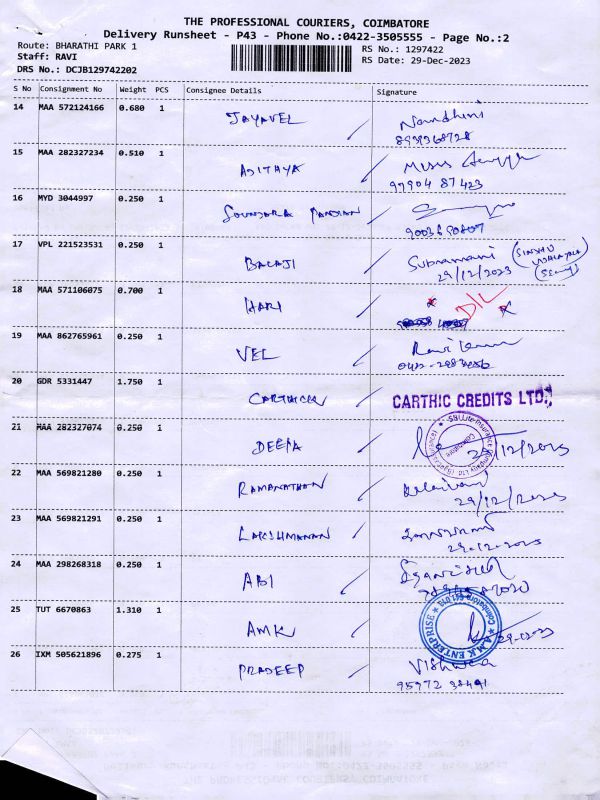 THE PROFESSIONAL COURIERS, COIMBATORE
Delivery Runsheet - P43 - Phone No.:0422-3505555 - Page No.:2
Route: BHARATHI PARK 1
RS No.: 1297422
Staff: RAVI
RS Date: 29-Dec-2023
DRS No.: DCJB129742202
S No Consignment No Weight PCS Consignee Details Signature
14 MAA 572124166 0.680 1 JAYAVEL Nandhini
15 MAA 282327234 0.510 1 ADITHYA
97904 87423
16 MYD 3044997 0.250 1 SOUNDARA PANDIAN
17 VPL 221523531 0.250 1 BALAJI Subramani
29/12/2023
18 MAA 571106075 0.700 1 HARI D/L
19 MAA 862765961 0.250 1 VEL
20 GDR 5331447 1.750 1 CARTHICK CARTHIC CREDITS LTD.,
21 MAA 282327074 0.250 1 DEEPA 29/12/2023
22 MAA 569821280 0.250 1 RAMANATHAN
29/12/2023
23 MAA 569821291 0.250 1 LAKSHMANAN
29-12-2023
24 MAA 298268318 0.250 1 ABI
25 TUT 6670863 1.310 1 AMK AMK ENTERPRISE
26 IXM 505621896 0.275 1 PRADEEP Vishwa
95972 38491